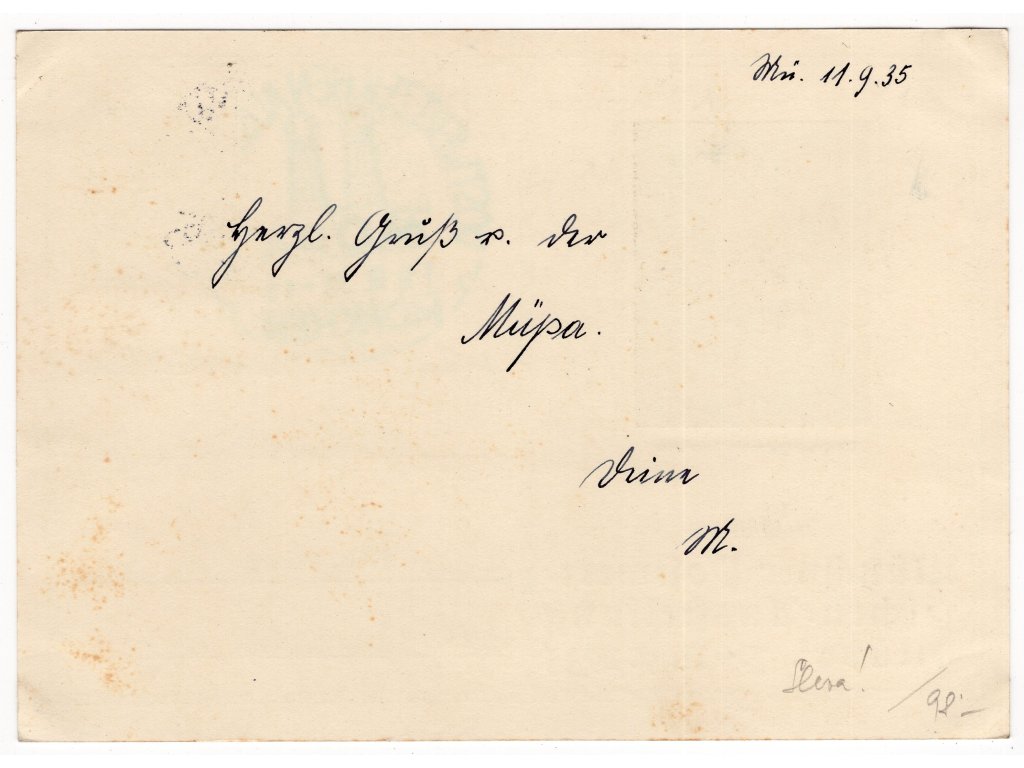 Mü. 11.9.35
Herzl. Gruß v. der
Müpa.
Deine
M.
Sleva!
/98.-